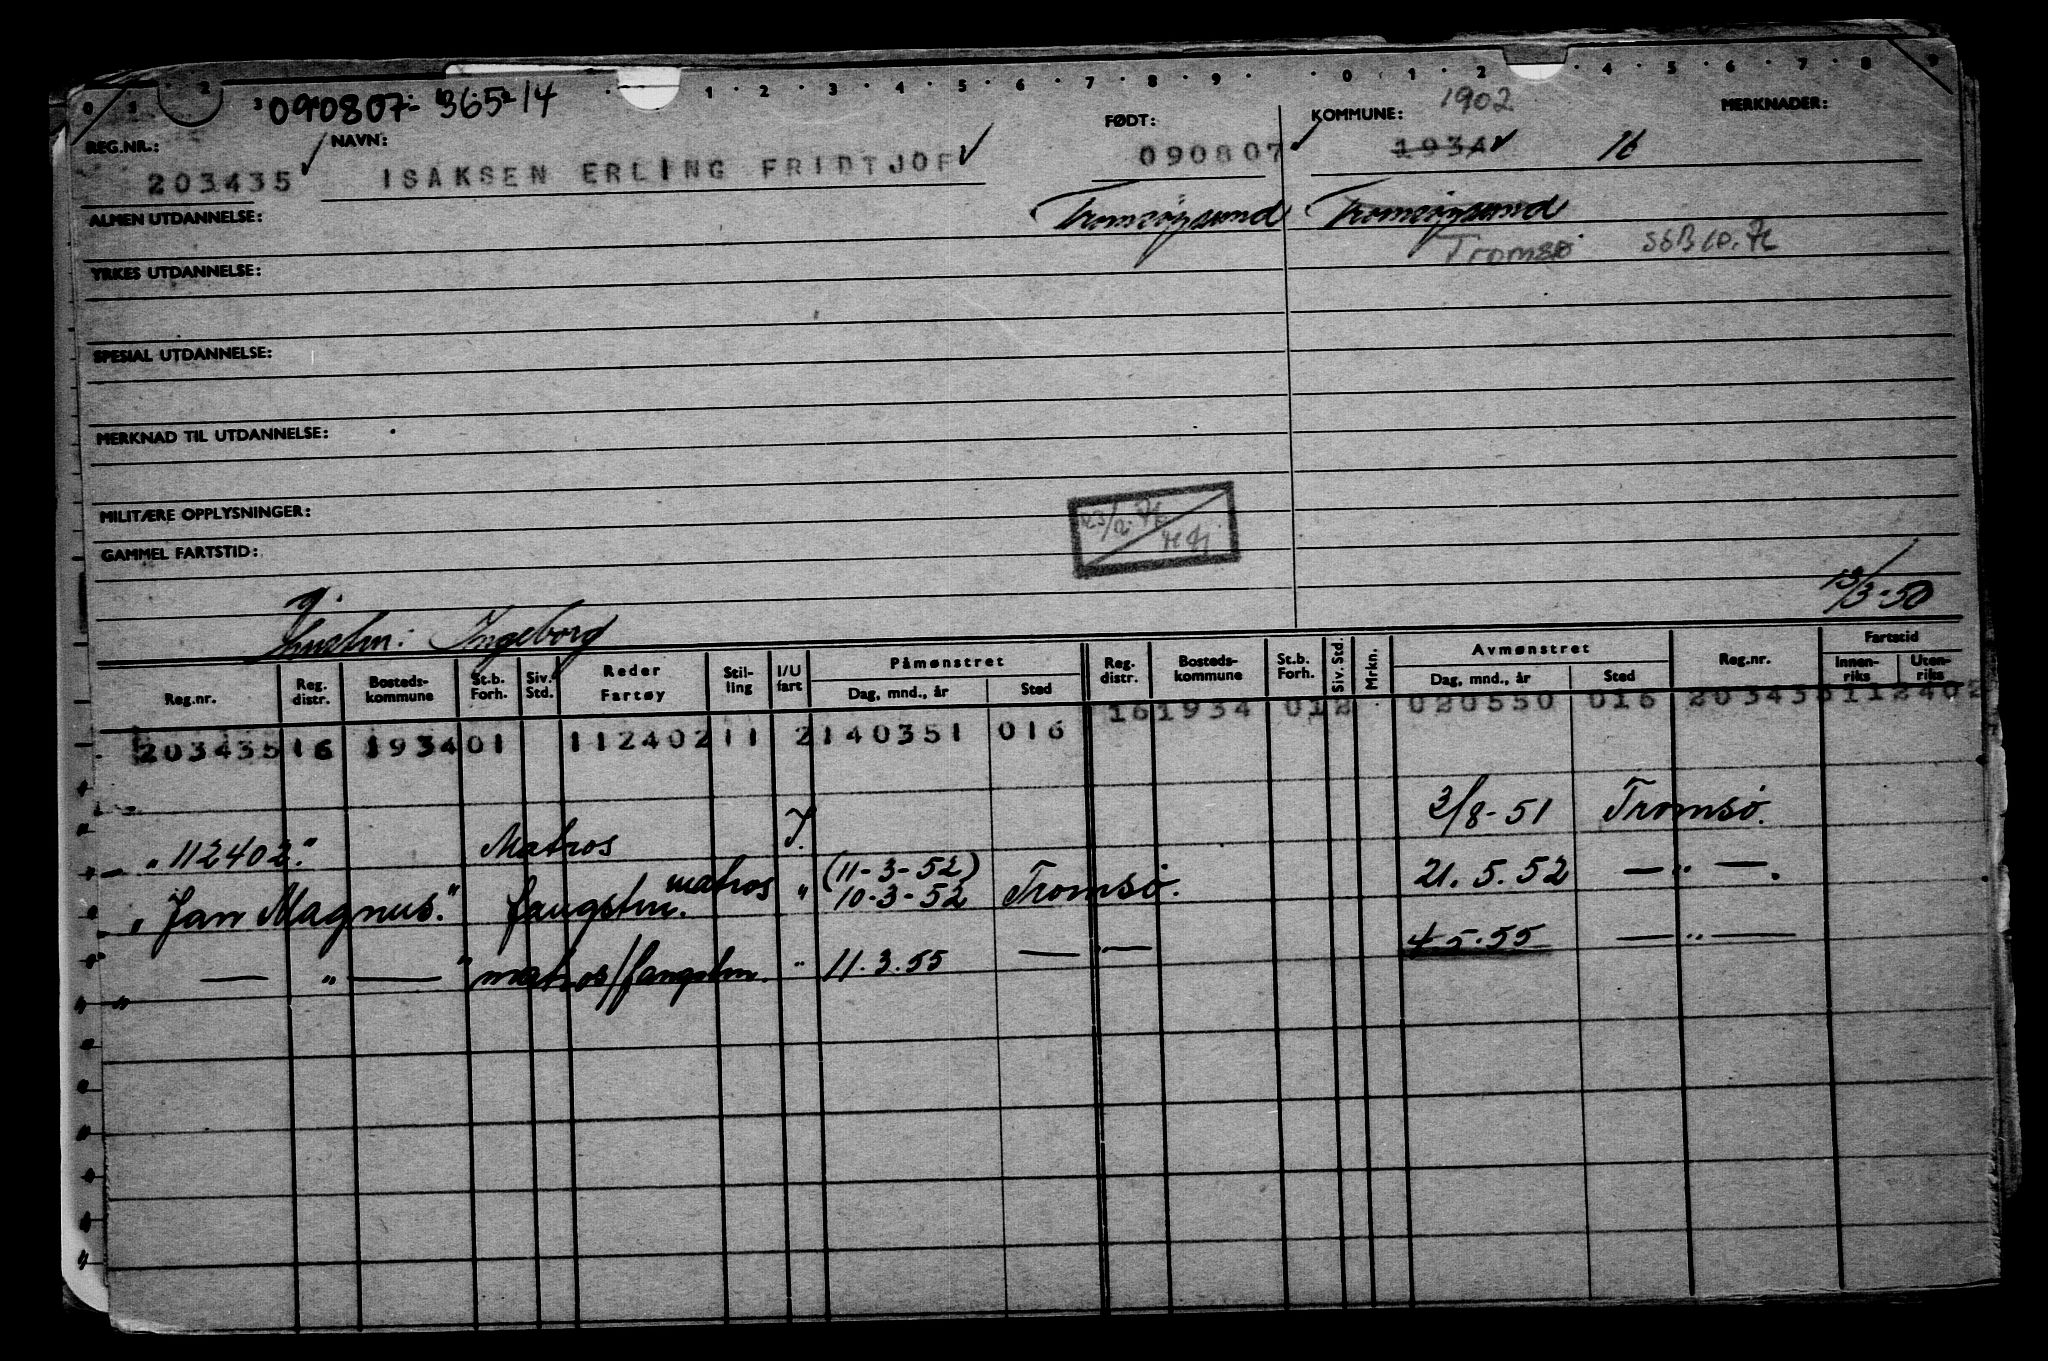 0 1 2 3 1 2 3 4 5 6 7 8 9 0 1 2 4 5 6 7 8 9
090807-36514
REG.NR.: NAVN: FØDT: KOMMUNE: 1902 MERKNADER:
203435 ISAKSEN ERLING FRIDTJOF 090807 1934 16
ALMEN UTDANNELSE: Tromsøysund Tromsøysund
Tromsø
YRKES UTDANNELSE:
SPESIAL UTDANNELSE:
MERKNAD TIL UTDANNELSE:
MILITÆRE OPPLYSNINGER:
GAMMEL FARTSTID:
13/3-50
Ingeborg
Reg.nr. Reg. distr. Bosteds-kommune St.b. Forh. Siv. Std. Reder Fartøy Stil-ling I/U fart Påmønstret Dag, mnd., år Sted Reg. distr. Bosteds-kommune St.b. Forh. Siv. Std. Mrkn. Avmønstret Dag, mnd., år Sted Reg.nr. Fartstid Innen-riks Uten-riks
16 1934 012 020550 016 203435 112402
203435 16 1934 01 112402 11 2 140351 016
"112402." Matros I. 3/8-51 Tromsø.
(11-3-52)
"Jan Magnus." fangstm. matros " 10-3-52 Tromsø. 21.5.52 — " —.
— " — " matros/fangstm. " 11.3.55 — — 4.5.55 — " —